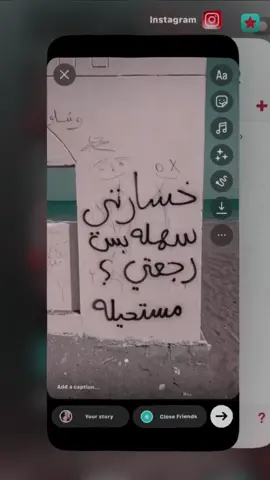 Instagram
Aa
خسارتي
سهله بس
رجعتي ؟
مستحيله
Add a caption...
Your story
Close Friends
?